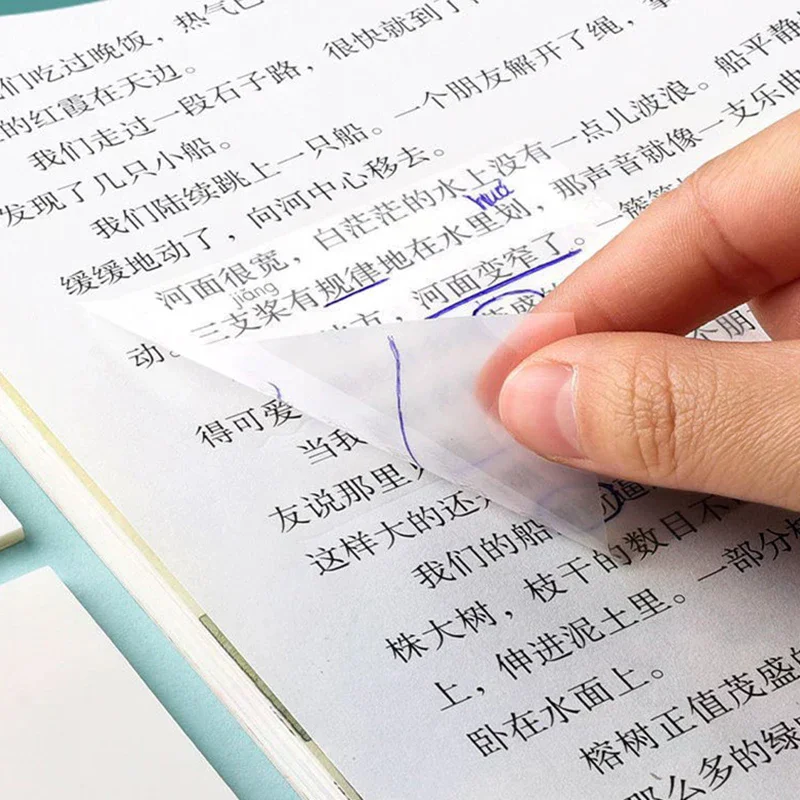 们吃过晚饭，热气
的红霞在天边。
我们走过一段石子路，很快就到了
发现了几只小船。
我们陆续跳上一只船。一个朋友解开了绳，
缓缓地动了，向河中心移去。
河面很宽，白茫茫的水上没有一点儿波浪。船平静
huá
jiāng
三支桨有规律地在水里划，那声音就像一支乐曲
动。
方，河面变窄了。一簇簇
得可爱
当我
朋
友说那里
这样大的还
我们的船
逼
株大树，枝干的数目不
上，伸进泥土里。一部分
卧在水面上。
榕树正值茂盛的
那么多的绿